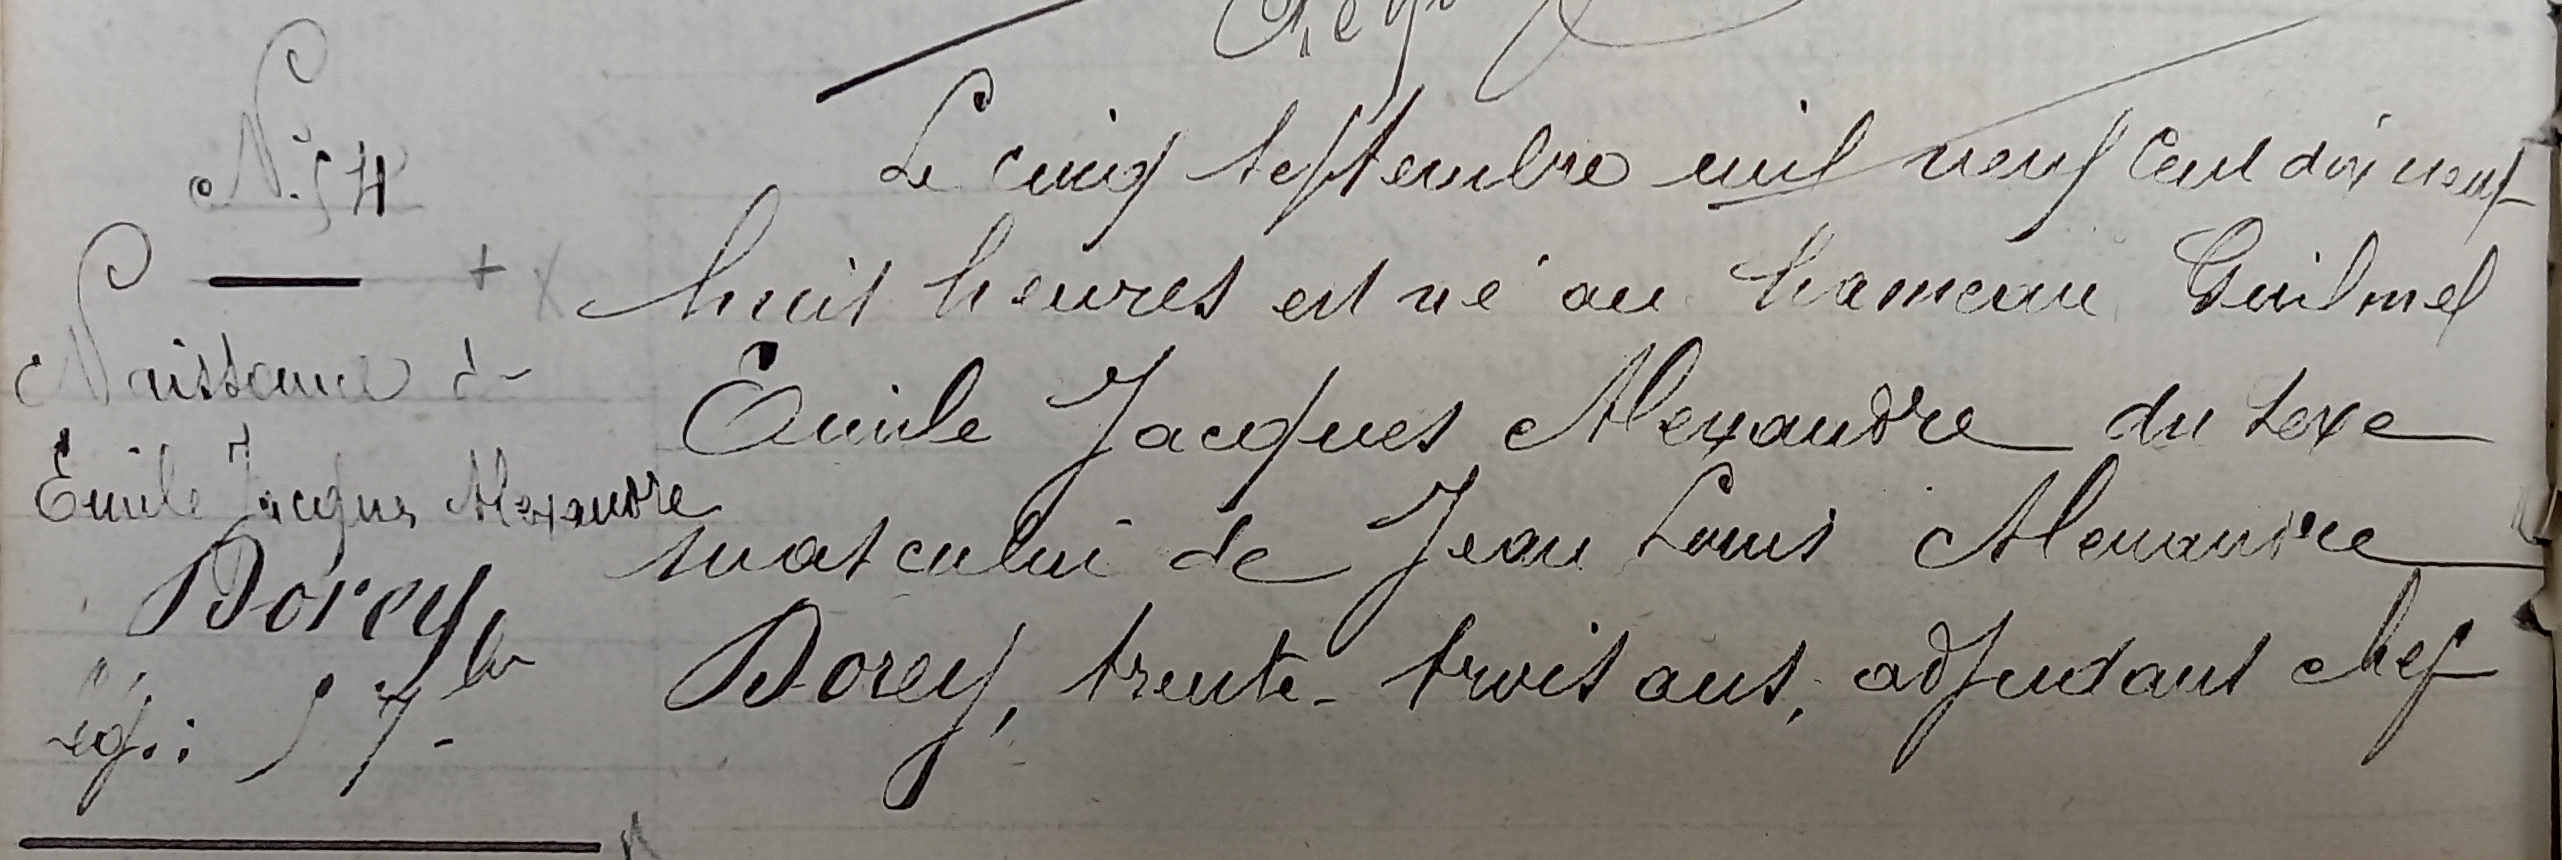 N° 54
Naissance de
Emile Jacques Alexandre
Dorey
lég.: 5 7bre
Le cinq septembre mil neuf cent dix neuf
huit heures est né au hameau Guilmel
Emile Jacques Alexandre du sexe
masculin de Jean Louis Alexandre
Dorey, trente-trois ans, adjudant chef